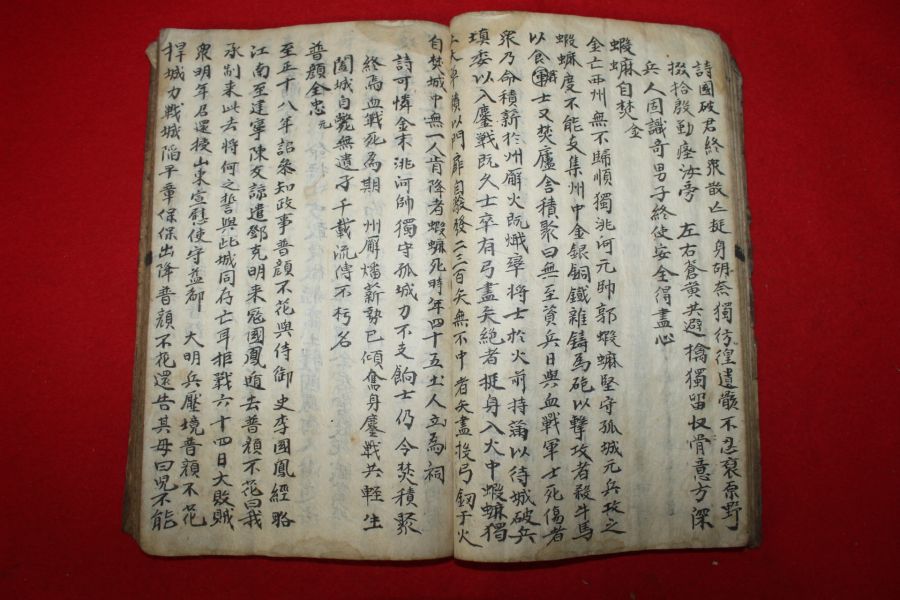 詩國破君終衆散亡挺身胡奈獨彷徨遺骸不忍裒原野
掇拾殷勤瘞汝旁 左右蒼黃共避擒獨留収骨意方深
兵人固識奇男子終使安全得盡心
蝦蟆自焚 金
金亡西州無不歸順獨洮河元帥郭蝦蟆堅守孤城元兵攻之
蝦蟆度不能支集州中金銀銅鐵雜鑄爲砲以擊攻者殺牛馬
以食戰士又焚廬舍積聚曰無至資兵日與血戰軍士死傷者
衆乃命積薪於州廨火既熾率將士於火前持滿以待城破兵
填委以入鏖戰既久士卒有弓盡矢絶者挺身入火中蝦蟆獨
上大草積以門扉自蔽發二三百矢無不中者矢盡投弓釼于火
自焚城中無一人肯降者蝦蟆死時年四十五土人立爲祠
詩可憐金末洮河帥獨守孤城力不支餉士仍令焚積聚
終焉血戰死爲期 州廨燔薪勢已傾奮身鏖戰共輕生
闔城自斃無遺孑千載流傳不朽名
普顔全忠 元
至正十八年詔叅知政事普顔不花與侍御史李國鳳經略
江南至建寧陳友諒遣鄧克明来宼國鳳遁去普顔不花曰我
承制来此去將何之誓與此城同存亡耳拒戰六十四日大敗賊
衆明年召還授山東宣慰使守益都 大明兵壓境普顔不花
捍城力戰城陷平章保保出降普顔不花還告其母曰兒不能